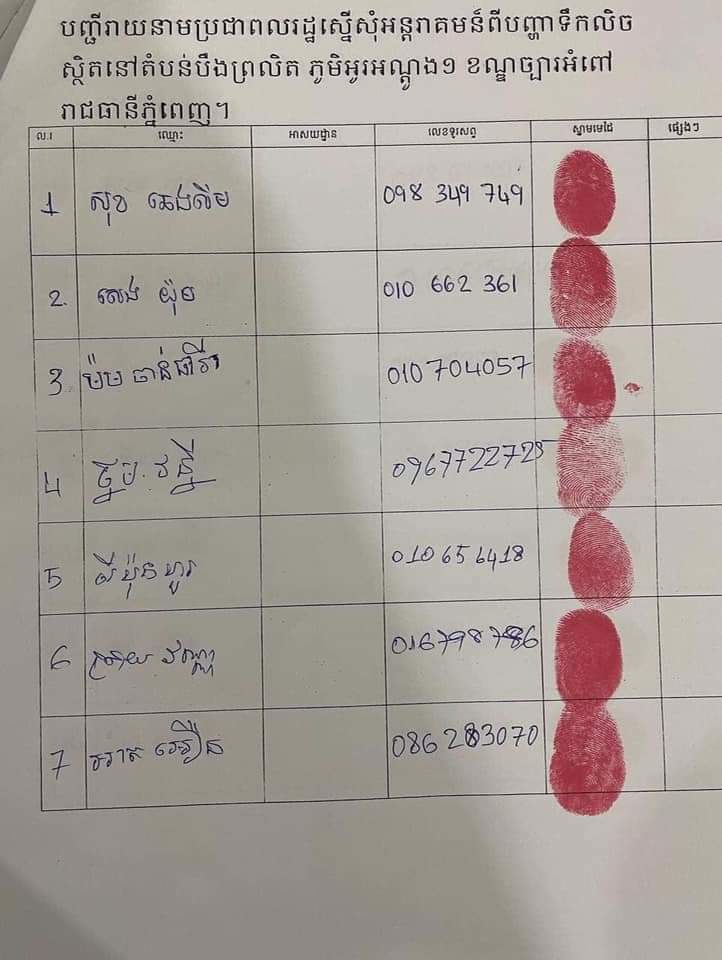 បញ្ជីរាយនាមប្រជាពលរដ្ឋស្នើសុំអន្តរាគមន៍ពីបញ្ហាទឹកលិច
ស្ថិតនៅតំបន់បឹងព្រលិត ភូមិអូរអណ្តូង១ ខណ្ឌច្បារអំពៅ
រាជធានីភ្នំពេញ។
ល.រ ឈ្មោះ អាសយដ្ឋាន លេខទូរសព្ទ ស្នាមមេដៃ ផ្សេងៗ
1 សុខ ឆេងលីម 098 349 749
2. សេង យ៉ុម 010 662 361
3 ម៉ម ចាន់ 010 704057
4 0967722725
5 លី ប៉ុន ហួរ 010 656418
6 វណ្ណា 016798786
7 086 283070